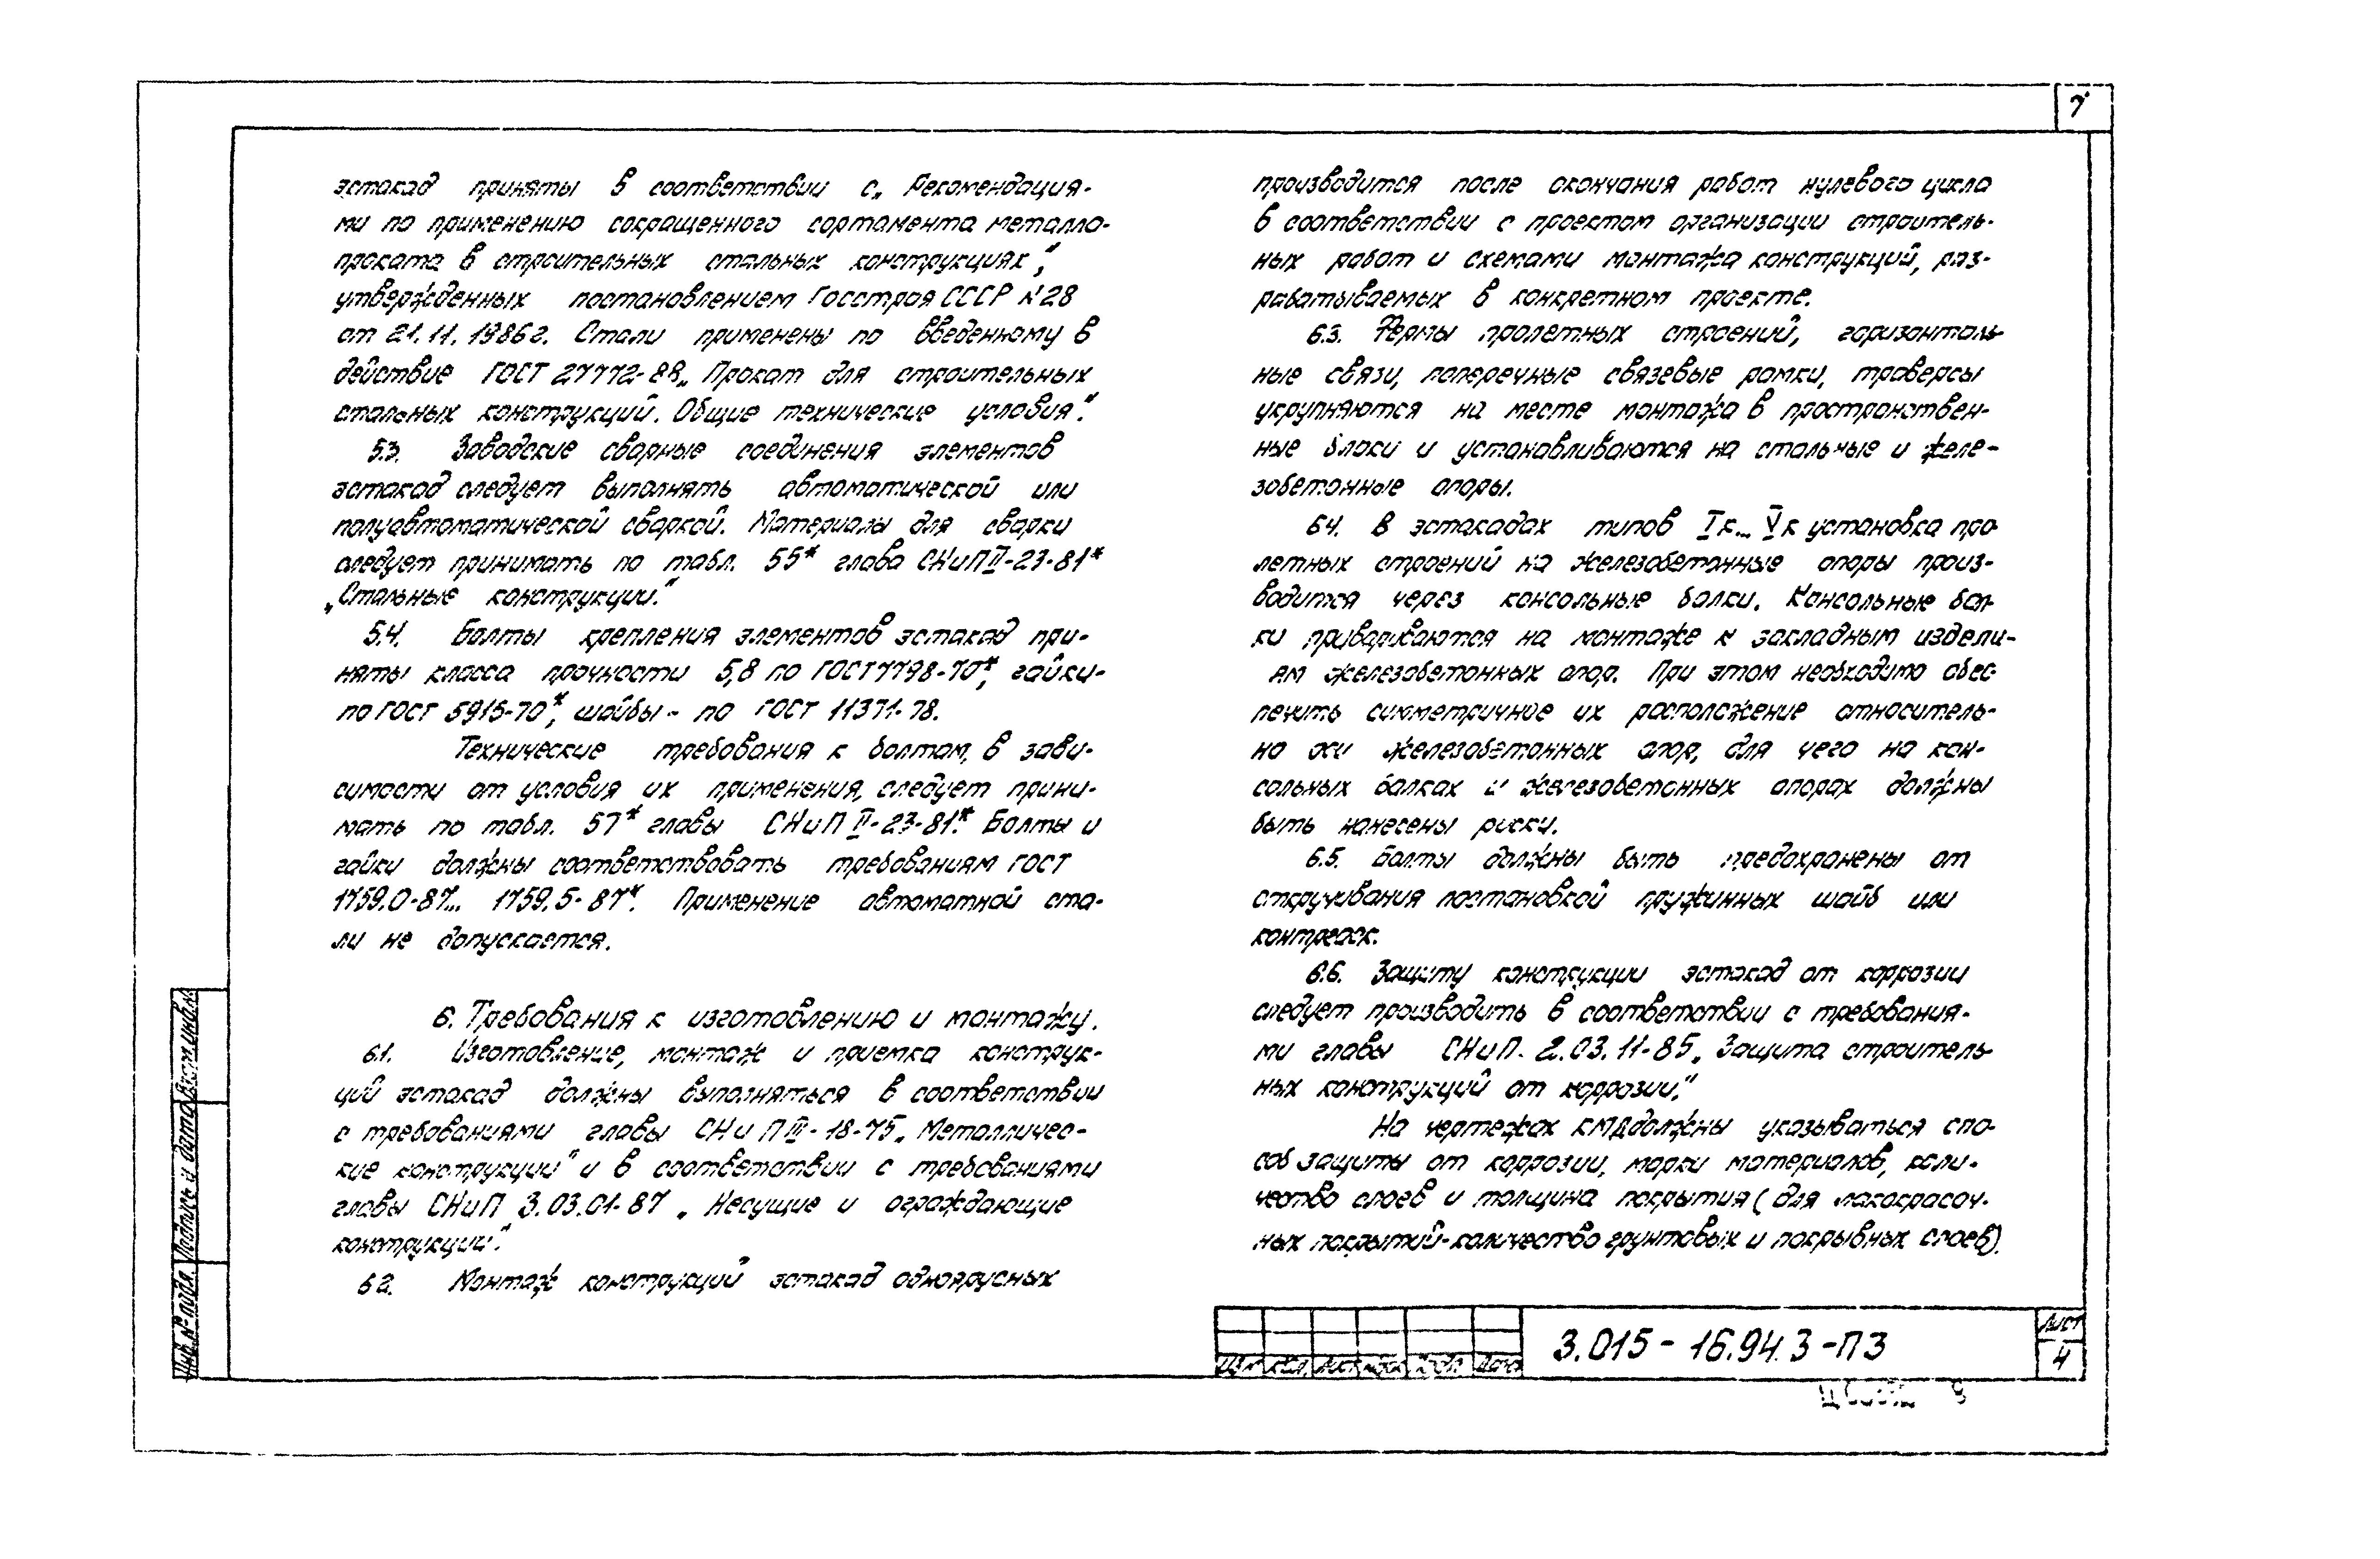 7
эстакад приняты в соответствии с „Рекомендация-
ми по применению сокращенного сортамента металло-
проката в строительных стальных конструкциях",
утвержденных постановлением Госстроя СССР №28
от 21.11.1986г. Стали применены по введенному в
действие ГОСТ 27772-88 „Прокат для строительных
стальных конструкций. Общие технические условия".
5.3. Заводские сварные соединения элементов
эстакад следует выполнять автоматической или
полуавтоматической сваркой. Материалы для сварки
следует принимать по табл. 55* глава СНиП II-23-81*
„Стальные конструкции."
5.4. Болты крепления элементов эстакад при-
няты класса прочности 5,8 по ГОСТ 7798-70*, гайки-
по ГОСТ 5915-70*, шайбы - по ГОСТ 11371-78.
Технические требования к болтам, в зави-
симости от условия их применения, следует прини-
мать по табл. 57* главы СНиП II-23-81*. Болты и
гайки должны соответствовать требованиям ГОСТ
1759.0-87... 1759.5-87*. Применение автоматной ста-
ли не допускается.
6. Требования к изготовлению и монтажу.
6.1. Изготовление, монтаж и приемка конструк-
ций эстакад должны выполняться в соответствии
с требованиями главы СНиП III-18-75 „Металличес-
кие конструкции" и в соответствии с требованиями
главы СНиП 3.03.01-87 „Несущие и ограждающие
конструкции".
6.2. Монтаж конструкций эстакад одноярусных
производится после окончания работ нулевого цикла
в соответствии с проектом организации строитель-
ных работ и схемами монтажа конструкций, раз-
рабатываемых в конкретном проекте.
6.3. Фермы пролетных строений, горизонталь-
ные связи, поперечные связевые рамки, траверсы
укрупняются на месте монтажа в пространствен-
ные блоки и устанавливаются на стальные и желе-
зобетонные опоры.
6.4. В эстакадах типов Iк... Vк установка про-
летных строений на железобетонные опоры произ-
водится через консольные балки. Консольные бал-
ки привариваются на монтаже к закладным издели-
ям железобетонных опор. При этом необходимо обес-
печить симметричное их расположение относитель-
но оси железобетонных опор, для чего на кон-
сольных балках и железобетонных опорах должны
быть нанесены риски.
6.5. Болты должны быть предохранены от
откручивания постановкой пружинных шайб или
контргаек.
6.6. Защиту конструкции эстакад от коррозии
следует производить в соответствии с требования-
ми главы СНиП. 2.03.11-85 „Защита строитель-
ных конструкций от коррозии."
На чертежах КМД должны указываться спо-
соб защиты от коррозии, марки материалов, коли-
чество слоев и толщина покрытия (для лакокрасоч-
ных покрытий-количество грунтовых и покрывных слоев).
Инв. № подл. Подпись и дата Взам. инв. №
Изм Кол. Лист №док Подп. Дата
3.015-16.94.3-ПЗ
Лист
4